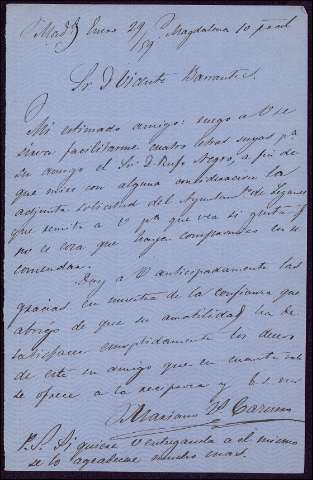 Madd Enero 29/59 Magdalena 10 pral
Sr D Vicente Barrantes.
Mi estimado amigo: ruego a V se
sirva facilitarme cuatro letras suyas pª
su amigo el Sr. D. Rufo Negro, a fin de
que mire con alguna consideracion la
adjunta solicitud del Ayuntamto de
que remito a V pª que vea si gusta y
no es cosa que haya compromiso en re
comendar.
Doy a V anticipadamente las
gracias en muestra de la confianza que
abrigo de que su amabilidad ha de
satisfacer cumplidamente los deseos
de este su amigo que en cuanto vale
se ofrece a la reciproca y b. s. m.
Mariano
P. S. Si quiere V entregarla a él mismo
se lo agradeceré mucho mas.